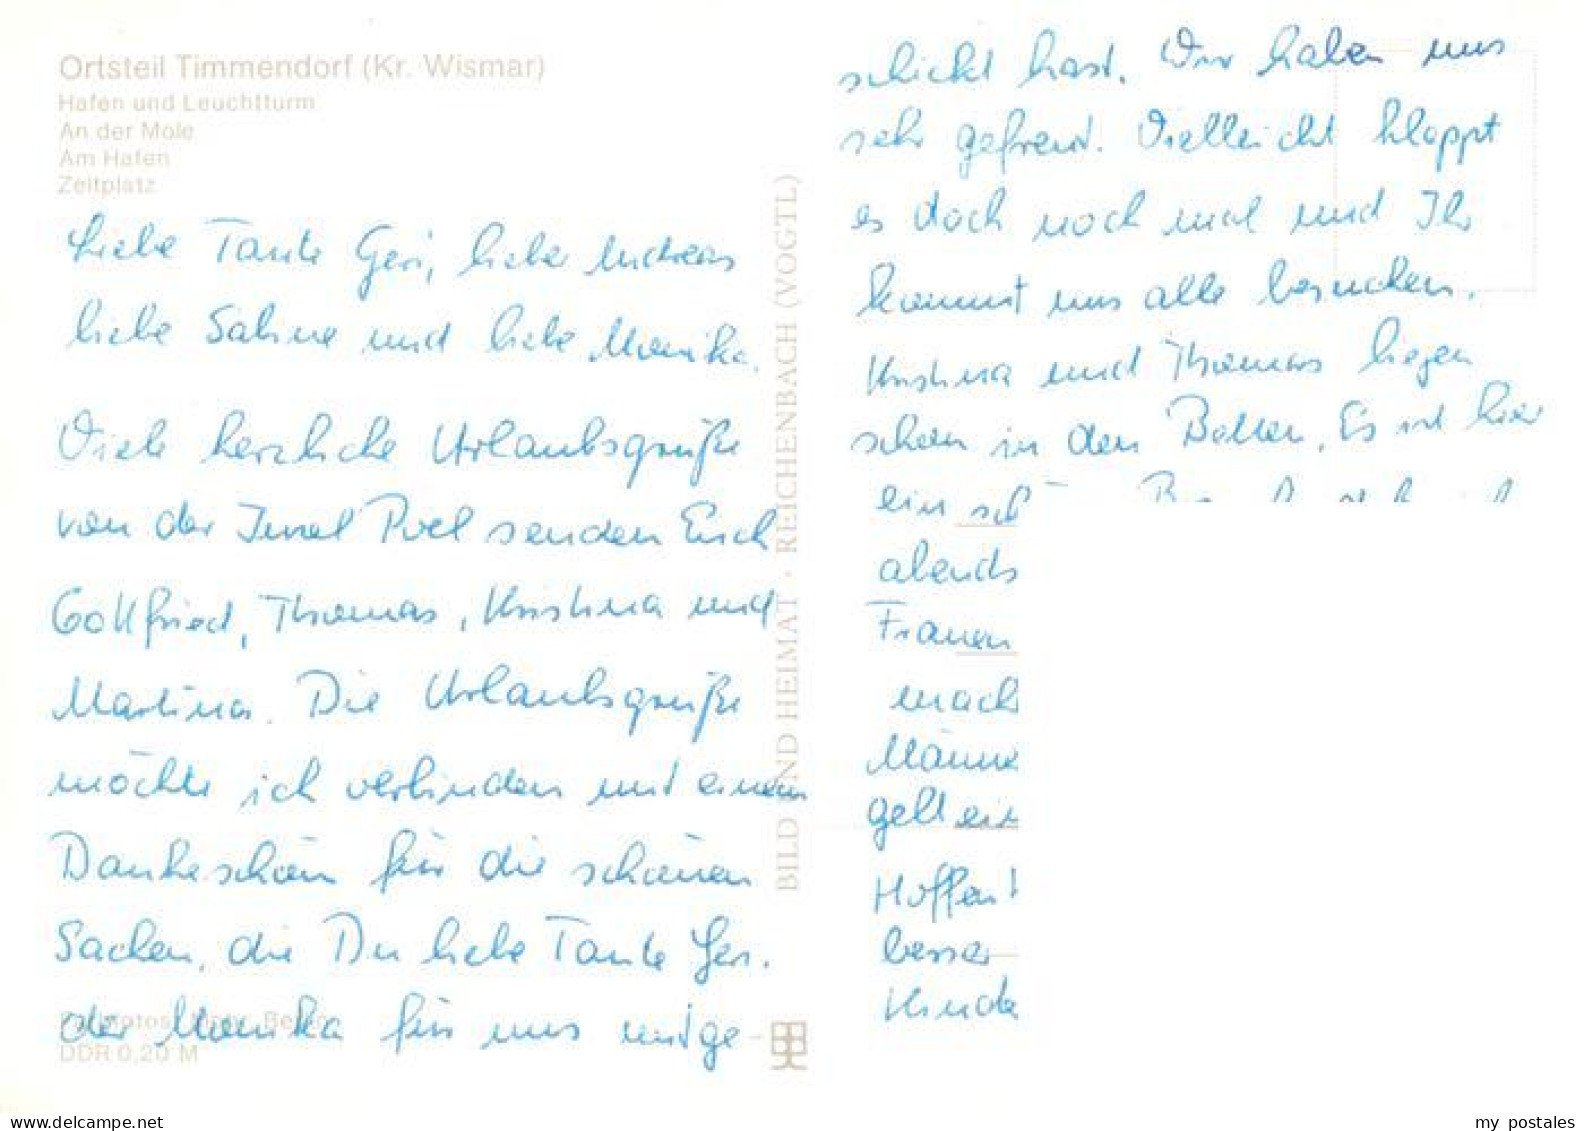 Ortsteil Timmendorf (Kr. Wismar)
Hafen und Leuchtturm
An der Mole
Am Hafen
Zeltplatz
Liebe Tante Geri, lieber Andreas
liebe Sabine und liebe Monika.
Viele herzliche Urlaubsgrüße
von der Insel Poel senden Euch
Gottfried, Thomas, Kristina und
Martina. Die Urlaubsgrüße
möchte ich verbinden mit einem
Dankeschön für die schönen
Sachen, die Du liebe Tante Geri.
der Monika für uns mitge-
DDR 0,20 M
BILD UND HEIMAT · REICHENBACH (VOGTL)
schickt hast. Wir haben uns
sehr gefreut. Vielleicht klappt
es doch noch mal und Ihr
kommt uns alle besuchen.
Kristina und Thomas liegen
schon in den Betten. Es ist hier
ein
abends
Frauen
mach
Männe
gelt
Hoffen
besser
Kinde
delcampe.net
my_postales